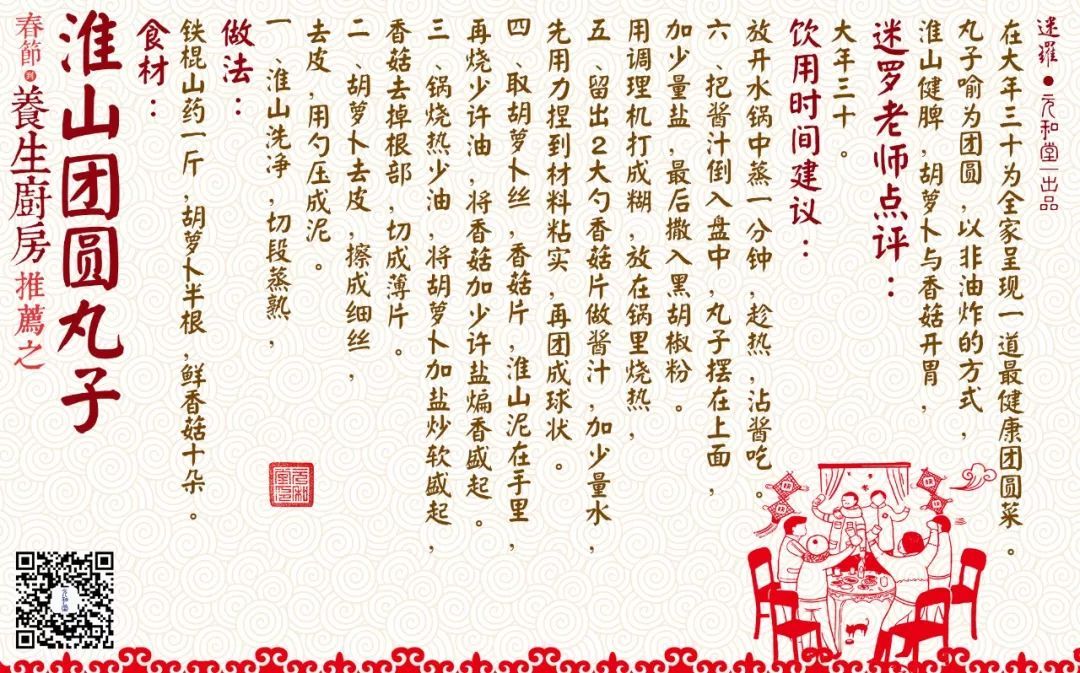 春節
養生廚房
推薦之
淮山团圆丸子
食材：
铁棍山药一斤，胡萝卜半根，鲜香菇十朵。
做法：
一、淮山洗净，切段蒸熟，
去皮，用勺压成泥。
二、胡萝卜去皮，擦成细丝，
香菇去掉根部，切成薄片。
三、锅烧热少油，将胡萝卜加盐炒软盛起，
再烧少许油，将香菇加少许盐煸香盛起。
四、取胡萝卜丝，香菇片，淮山泥在手里，
先用力捏到材料粘实，再团成球状。
五、留出2大勺香菇片做酱汁，加少量水，
用调理机打成糊，放在锅里烧热，
加少量盐，最后撒入黑胡椒粉。
六、把酱汁倒入盘中，丸子摆在上面，
放开水锅中蒸一分钟，趁热，沾酱吃。
饮用时间建议：
大年三十。
迷罗老师点评：
淮山健脾，胡萝卜与香菇开胃，
丸子喻为团圆，以非油炸的方式，
在大年三十为全家呈现一道最健康团圆菜。
迷羅•元和堂|出品